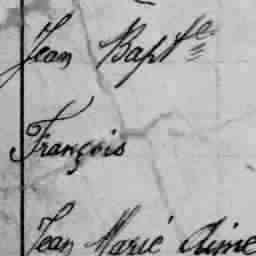 Jean Bapte
François
Jean Marie Aimé